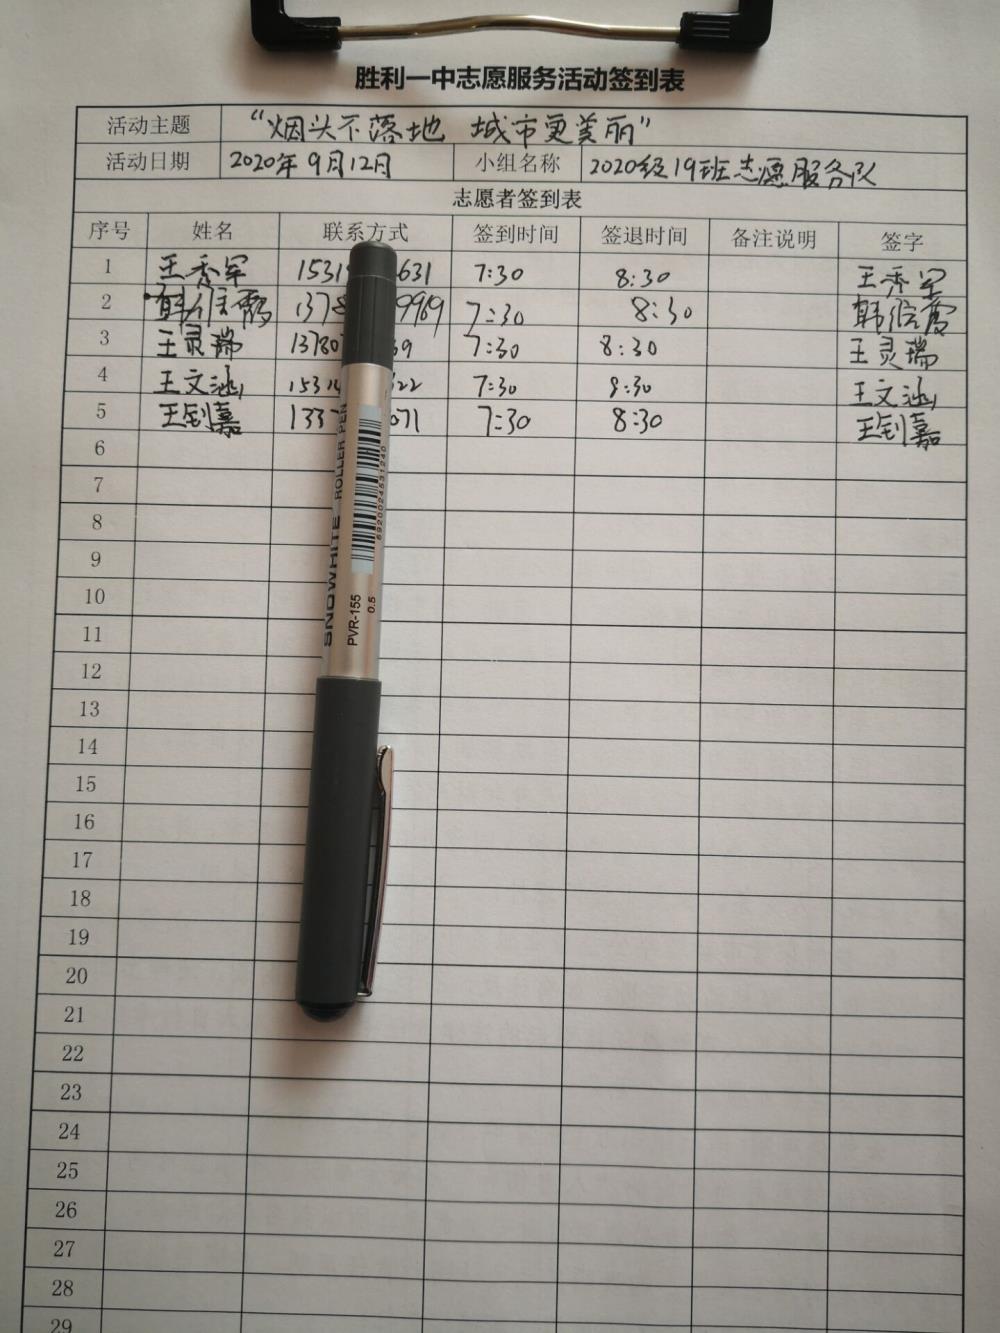 胜利一中志愿服务活动签到表
活动主题 “烟头不落地 城市更美丽”
活动日期 2020年9月12日 小组名称 2020级19班志愿服务队
志愿者签到表
序号 姓名 联系方式 签到时间 签退时间 备注说明 签字
1 王秀军 1531 631 7:30 8:30 王秀军
2 1378 9969 7:30 8:30
3 王灵瑞 13780 39 7:30 8:30 王灵瑞
4 王文涵 1531 322 7:30 8:30 王文涵
5 王钊嘉 133 071 7:30 8:30 王钊嘉
6
7
8
9
10
11
12
13
14
15
16
17
18
19
20
21
22
23
24
25
26
27
28
29
SNOWHITE ROLLER PEN
6920024531240
PVR-155
0.5